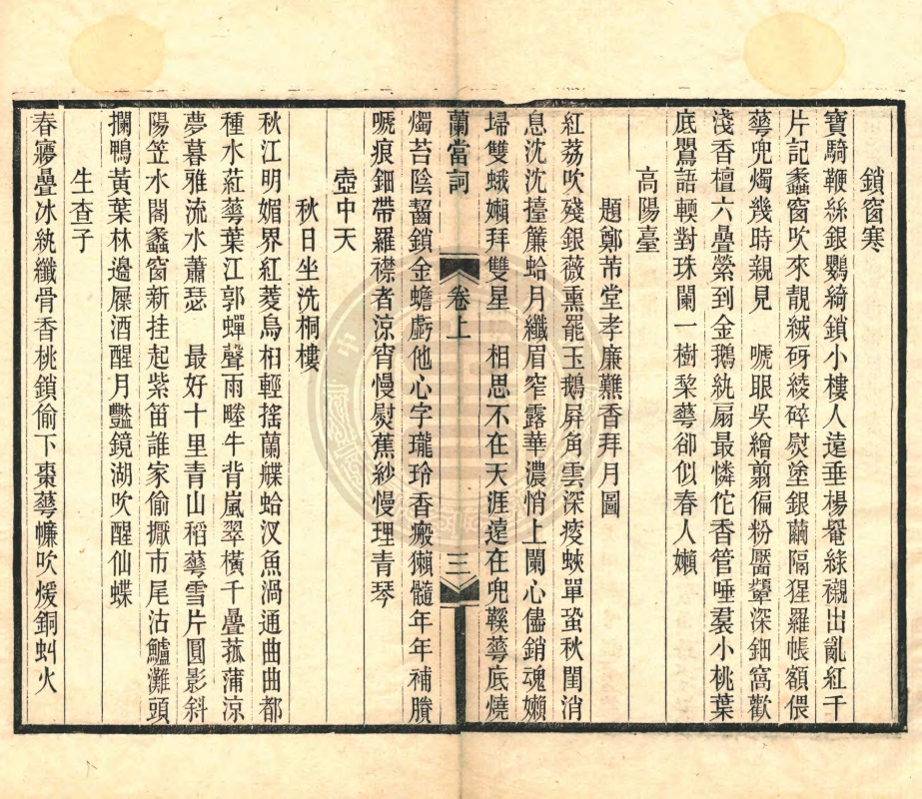 鎖窗寒
寶騎鞭絲銀鸚綺鎖小樓人遠垂楊罨綠襯出亂紅千
片記蠡窗吹來靚絨砑綾碎熨塗銀繭隔猩羅帳額偎
蕚兜燭幾時親見　嗁眼吳繪翦偏粉靨顰深鈿窩歡
淺香檀六疊縈到金鵝紈扇最憐佗香管唾裠小桃葉
底鸎語輭對珠闌一樹棃蕚卻似春人嬾
高陽臺
題鄭芾堂孝廉蘸香拜月圖
紅荔吹殘銀薇熏罷玉鵝屏角雲深痠蛺單蛩秋閨消
息沈沈擡簾蛤月纖眉窄露華濃悄上闌心儘銷魂嬾
埽雙蛾嬾拜雙星　相思不在天涯遠在兜鞵蕚底燒
蘭當詞
卷上
三
燭苔陰齧鎖金蟾虧他心字瓏玲香瘢獺髓年年補賸
嗁痕鈿帶羅襟者涼宵慢熨蕉紗慢理青琴
壺中天
秋日坐洗桐樓
秋江明媚界紅菱烏桕輕搖蘭艓蛤汊魚渦通曲曲都
種水葒蕚葉江郭蟬聲雨塍牛背嵐翠橫千疊菰蒲涼
夢暮雅流水蕭瑟　最好十里青山稻蕚雪片圓影斜
陽笠水閣蠡窗新挂起紫笛誰家偷擫市尾沽鱸灘頭
攔鴨黃葉林邊屧酒醒月豔鏡湖吹醒仙蝶
生查子
春寱疊冰紈纖骨香桃鎖偷下棗蕚㡘吹煖銅虯火